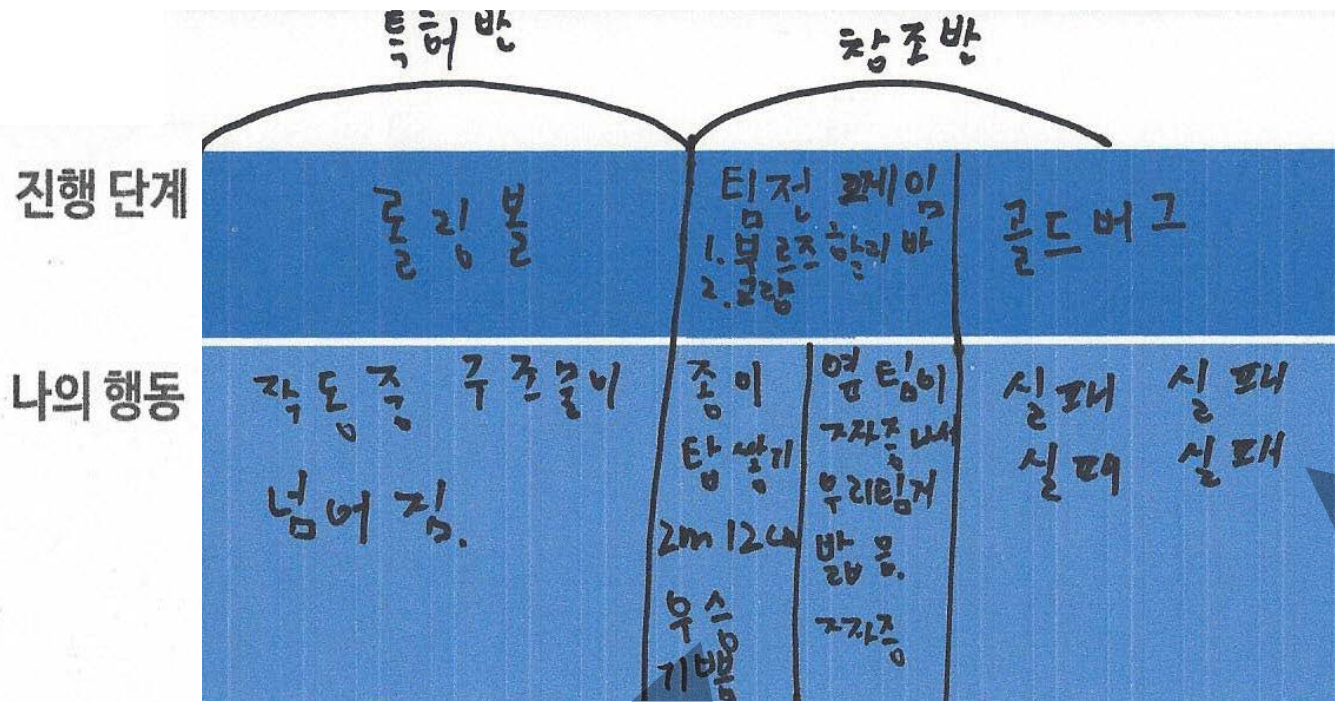 특허반 창조반
진행 단계
롤링볼
팀전 게임
1. 부르즈 할리바
2. 교량
골드버그
나의 행동
작동 중 구조물이
넘어 짐.
종이
탑 쌓기
2m 12cm
우승
기쁨
옆 팀이
짜증내서
우리팀거
밟음.
짜증
실패 실패
실패 실패